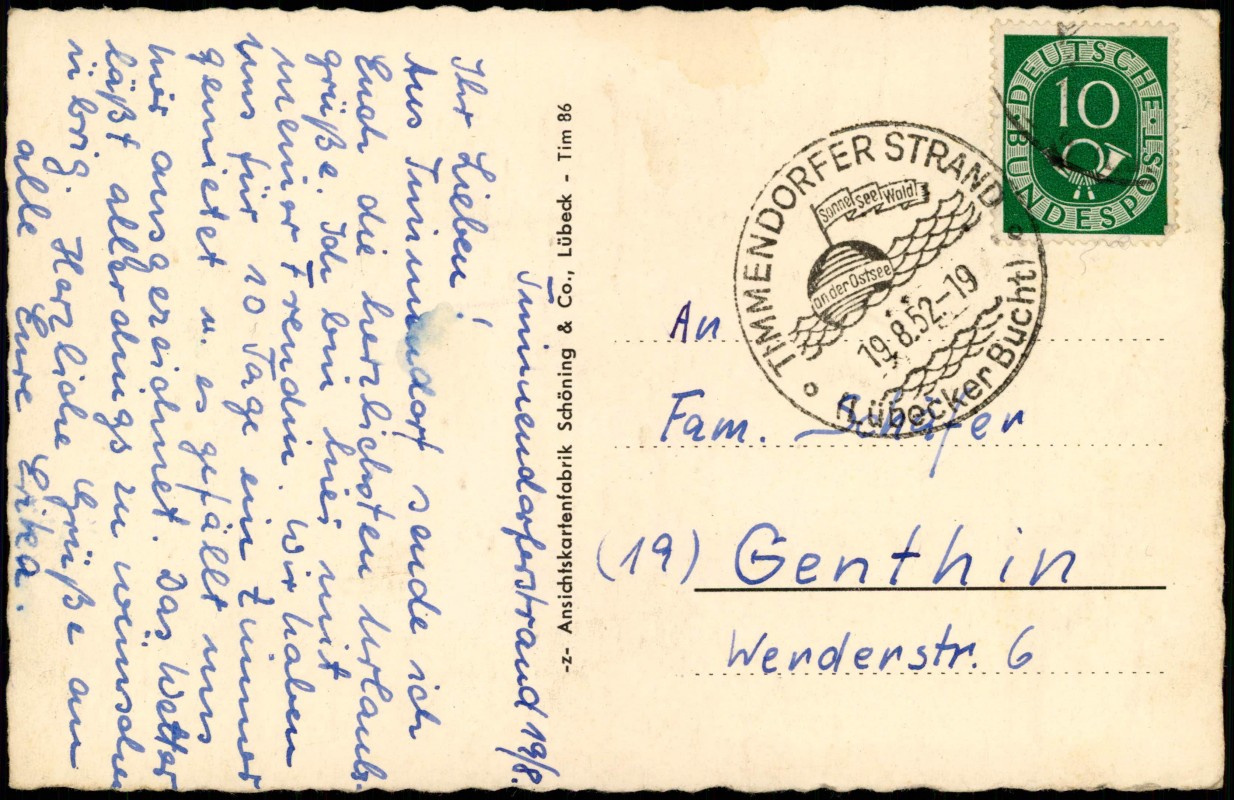 Timmendorferstrand 19/8.
Ihr Lieben!
Aus Timmendorf sende ich
Euch die herzlichsten Urlaubs-
grüße. Ich bin hier mit
meiner Freundin. Wir haben
uns für 10 Tage ein Zimmer
gemietet u. es gefällt uns
hier ausgezeichnet. Das Wetter
läßt allerdings zu wünschen
übrig. Herzliche Grüße an
alle Eure Erika.
-z- Ansichtskartenfabrik Schöning & Co., Lübeck - Tim 86
DEUTSCHE·
BUNDESPOST
10
TIMMENDORFER STRAND
Sonne See Wald!
an der Ostsee
19.8.52-19
(Lübecker Bucht)
An
Fam. Schäfer
(19) Genthin
Werderstr. 6